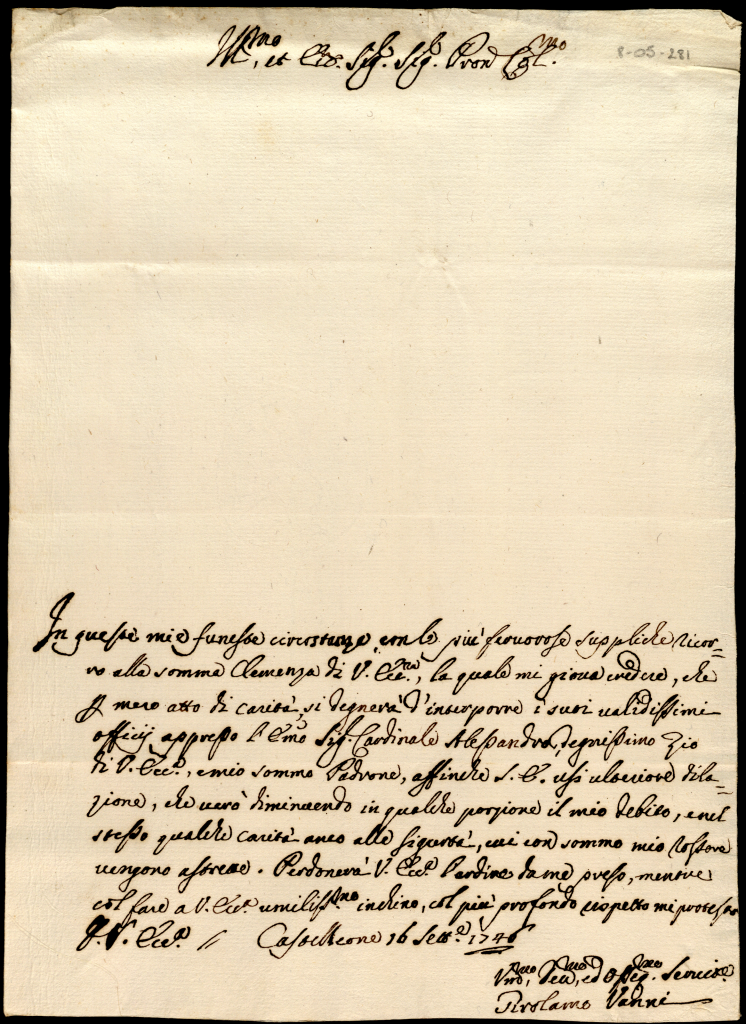 Ill.mo, et Ecc. Sig. Sig. Pron Col.mo
8-05-281
In queste mie funeste circostanze, con le più feruorose suppliche ricor=
ro alla somma Clemenza di V. Ecc., la quale mi gioua credere, che
p mero atto di carità, si degnerà d'interporre i suoi ualidissimi
officij appresso l'Emo Sig. Cardinale Alessandro, degnissimo Zio
di V. Ecc.a, e mio sommo Padrone, affinche S. E. usi ulteriore dila=
zione, che uerò diminuendo in qualche porzione il mio debito, e nel
stesso qualche carità anco alle sigurtà, cui con sommo mio rossore
uengono astrette. Perdonerà V. Ecc.a l'ardire da me preso, mentre
col fare a V. Ecc.a umiliss.mo inchino, col più profondo rispetto mi protesto
D. V. Ecc.a // Castelleone 16 Sett.e
Vmo, Deu.mo, ed Obblig.mo Seruit.e
Girolamo Vanni